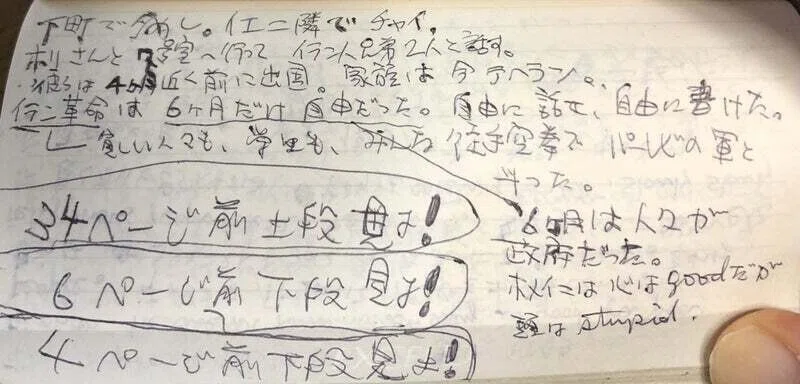 下町で夕めし。イエニ隣でチャイ。
ホリさんと7号室へ行って イラン人兄弟2人と話す。
彼らは4ヶ月近く前に出国。家族は今テヘラン。
イラン革命は 6ヶ月だけ自由だった。自由に話せ、自由に書けた。
貧しい人々も、学生も、みんな徒手空拳でパーレビの軍と
斗った。
6ヶ月は人々が
政府だった。
ホメイニは心はgoodだが
頭はstupid.
34ページ前上段見よ!
6ページ前下段見よ!
4ページ前下段見よ!